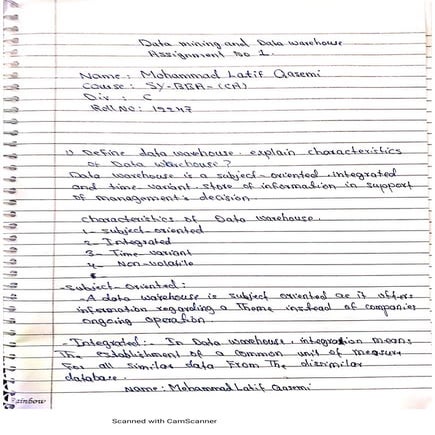 Data mining and Data warehouse
Assignment no 1.
Name: Mohammad Latif Qasemi
Course: SY-BBA-(CA)
Div: C
Roll No: 12247
1) Define data warehouse. explain characteristics
of Data warehouse?
Data warehouse is a subject-oriented, integrated
and time variant. store of information in support
of management's decision.
Characteristics of Data warehouse.
1- subject-oriented
2- Integrated
3- Time-variant
4- Non-volatile
-Subject-Oriented:
-A data warehouse is subject oriented as it offers
information regarding a Theme instead of companies
ongoing operation.
-Integrated:- In Data warehouse, integration means
The establishment of a common unit of measure
For all similar data From The dissimilar
database.
Name: Mohammad Latif Qasemi
Rainbow
Scanned with CamScanner